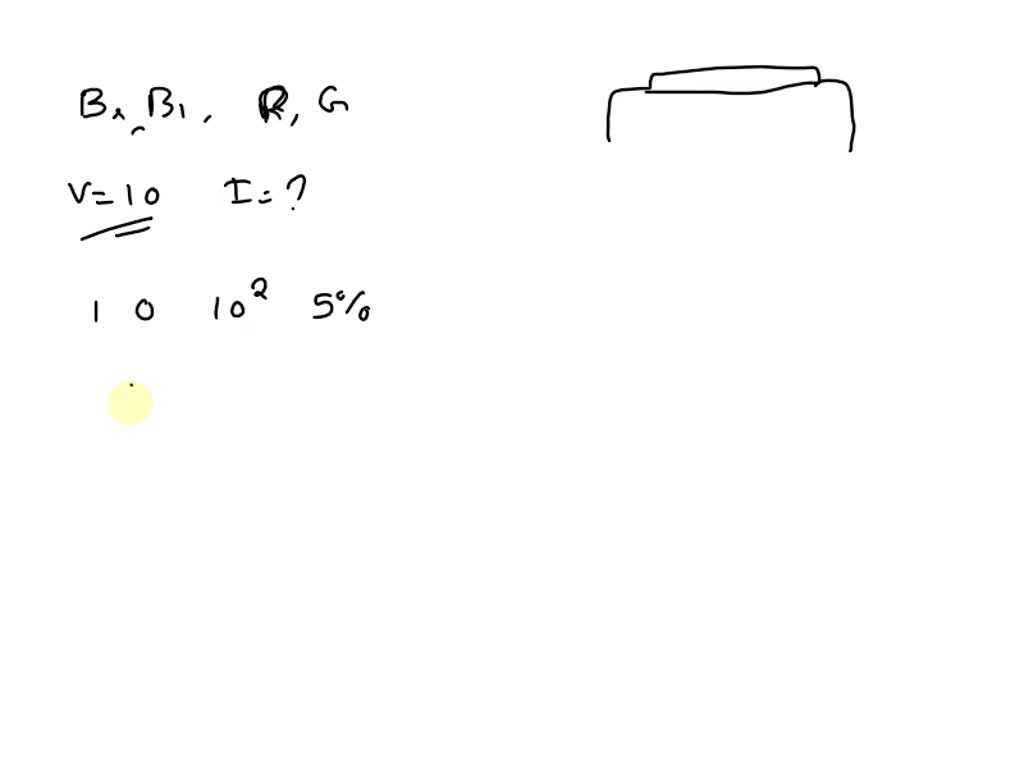 Br, Bl, R, G
V=10 I=?
1 0 10² 5%